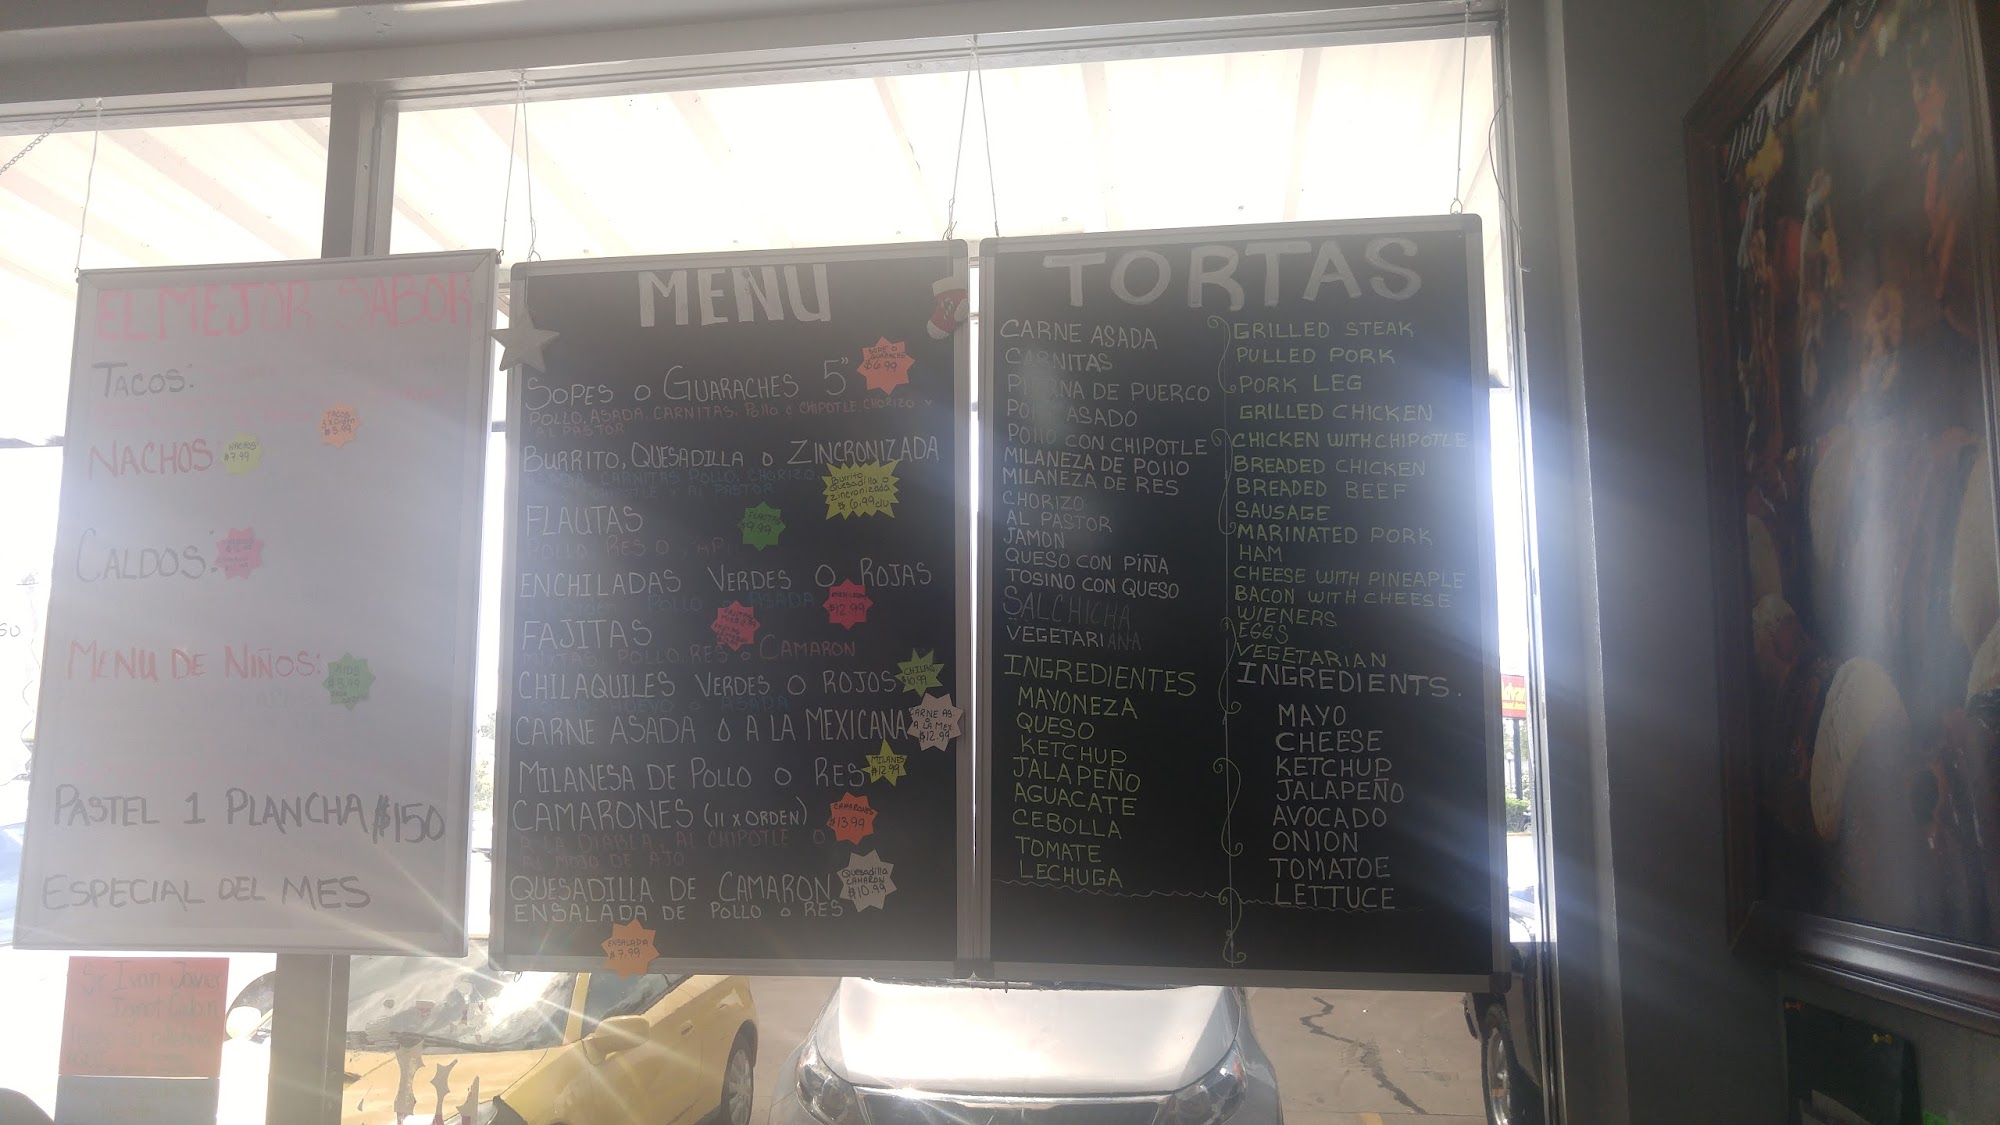 EL MEJOR SABOR
TACOS:
TACOS
$5.99
NACHOS:
NACHOS
$7.99
CALDOS:
MENU DE NIÑOS:
PASTEL 1 PLANCHA $150
ESPECIAL DEL MES
Sr Ivan Javier
MENU
SOPES O GUARACHES 5"
SOPE O
GUARACHE
$6.99
POLLO, ASADA, CARNITAS, POLLO C CHIPOTLE, CHORIZO Y
AL PASTOR
BURRITO, QUESADILLA O ZINCRONIZADA
CARNITAS POLLO, CHORIZO
AL PASTOR
Burrito
Quesadilla o
Zincronizada
$6.99 c/u
FLAUTAS
FLAUTAS
$9.99
POLLO RES O PAPA
ENCHILADAS VERDES O ROJAS
POLLO O ASADA
$12.99
FAJITAS
MIXTAS, POLLO, RES O CAMARON
CHILAQUILES VERDES O ROJOS
CHILAS
$10.99
HUEVO O ASADA
CARNE ASADA O A LA MEXICANA
CARNE AS
O
A LA MEX
$12.99
MILANESA DE POLLO O RES
MILANES
$12.99
CAMARONES (11 X ORDEN)
CAMARONES
$13.99
A LA DIABLA, AL CHIPOTLE O
AL MOJO DE AJO
QUESADILLA DE CAMARON
Quesadilla
CAMARON
$10.99
ENSALADA DE POLLO O RES
ENSALADA
$7.99
TORTAS
CARNE ASADA
CARNITAS
PIERNA DE PUERCO
POLLO ASADO
POLLO CON CHIPOTLE
MILANEZA DE POLLO
MILANEZA DE RES
CHORIZO
AL PASTOR
JAMON
QUESO CON PIÑA
TOSINO CON QUESO
SALCHICHA
VEGETARIANA
INGREDIENTES
MAYONEZA
QUESO
KETCHUP
JALAPEÑO
AGUACATE
CEBOLLA
TOMATE
LECHUGA
GRILLED STEAK
PULLED PORK
PORK LEG
GRILLED CHICKEN
CHICKEN WITH CHIPOTLE
BREADED CHICKEN
BREADED BEEF
SAUSAGE
MARINATED PORK
HAM
CHEESE WITH PINEAPLE
BACON WITH CHEESE
WIENERS
EGGS
VEGETARIAN
INGREDIENTS.
MAYO
CHEESE
KETCHUP
JALAPEÑO
AVOCADO
ONION
TOMATOE
LETTUCE